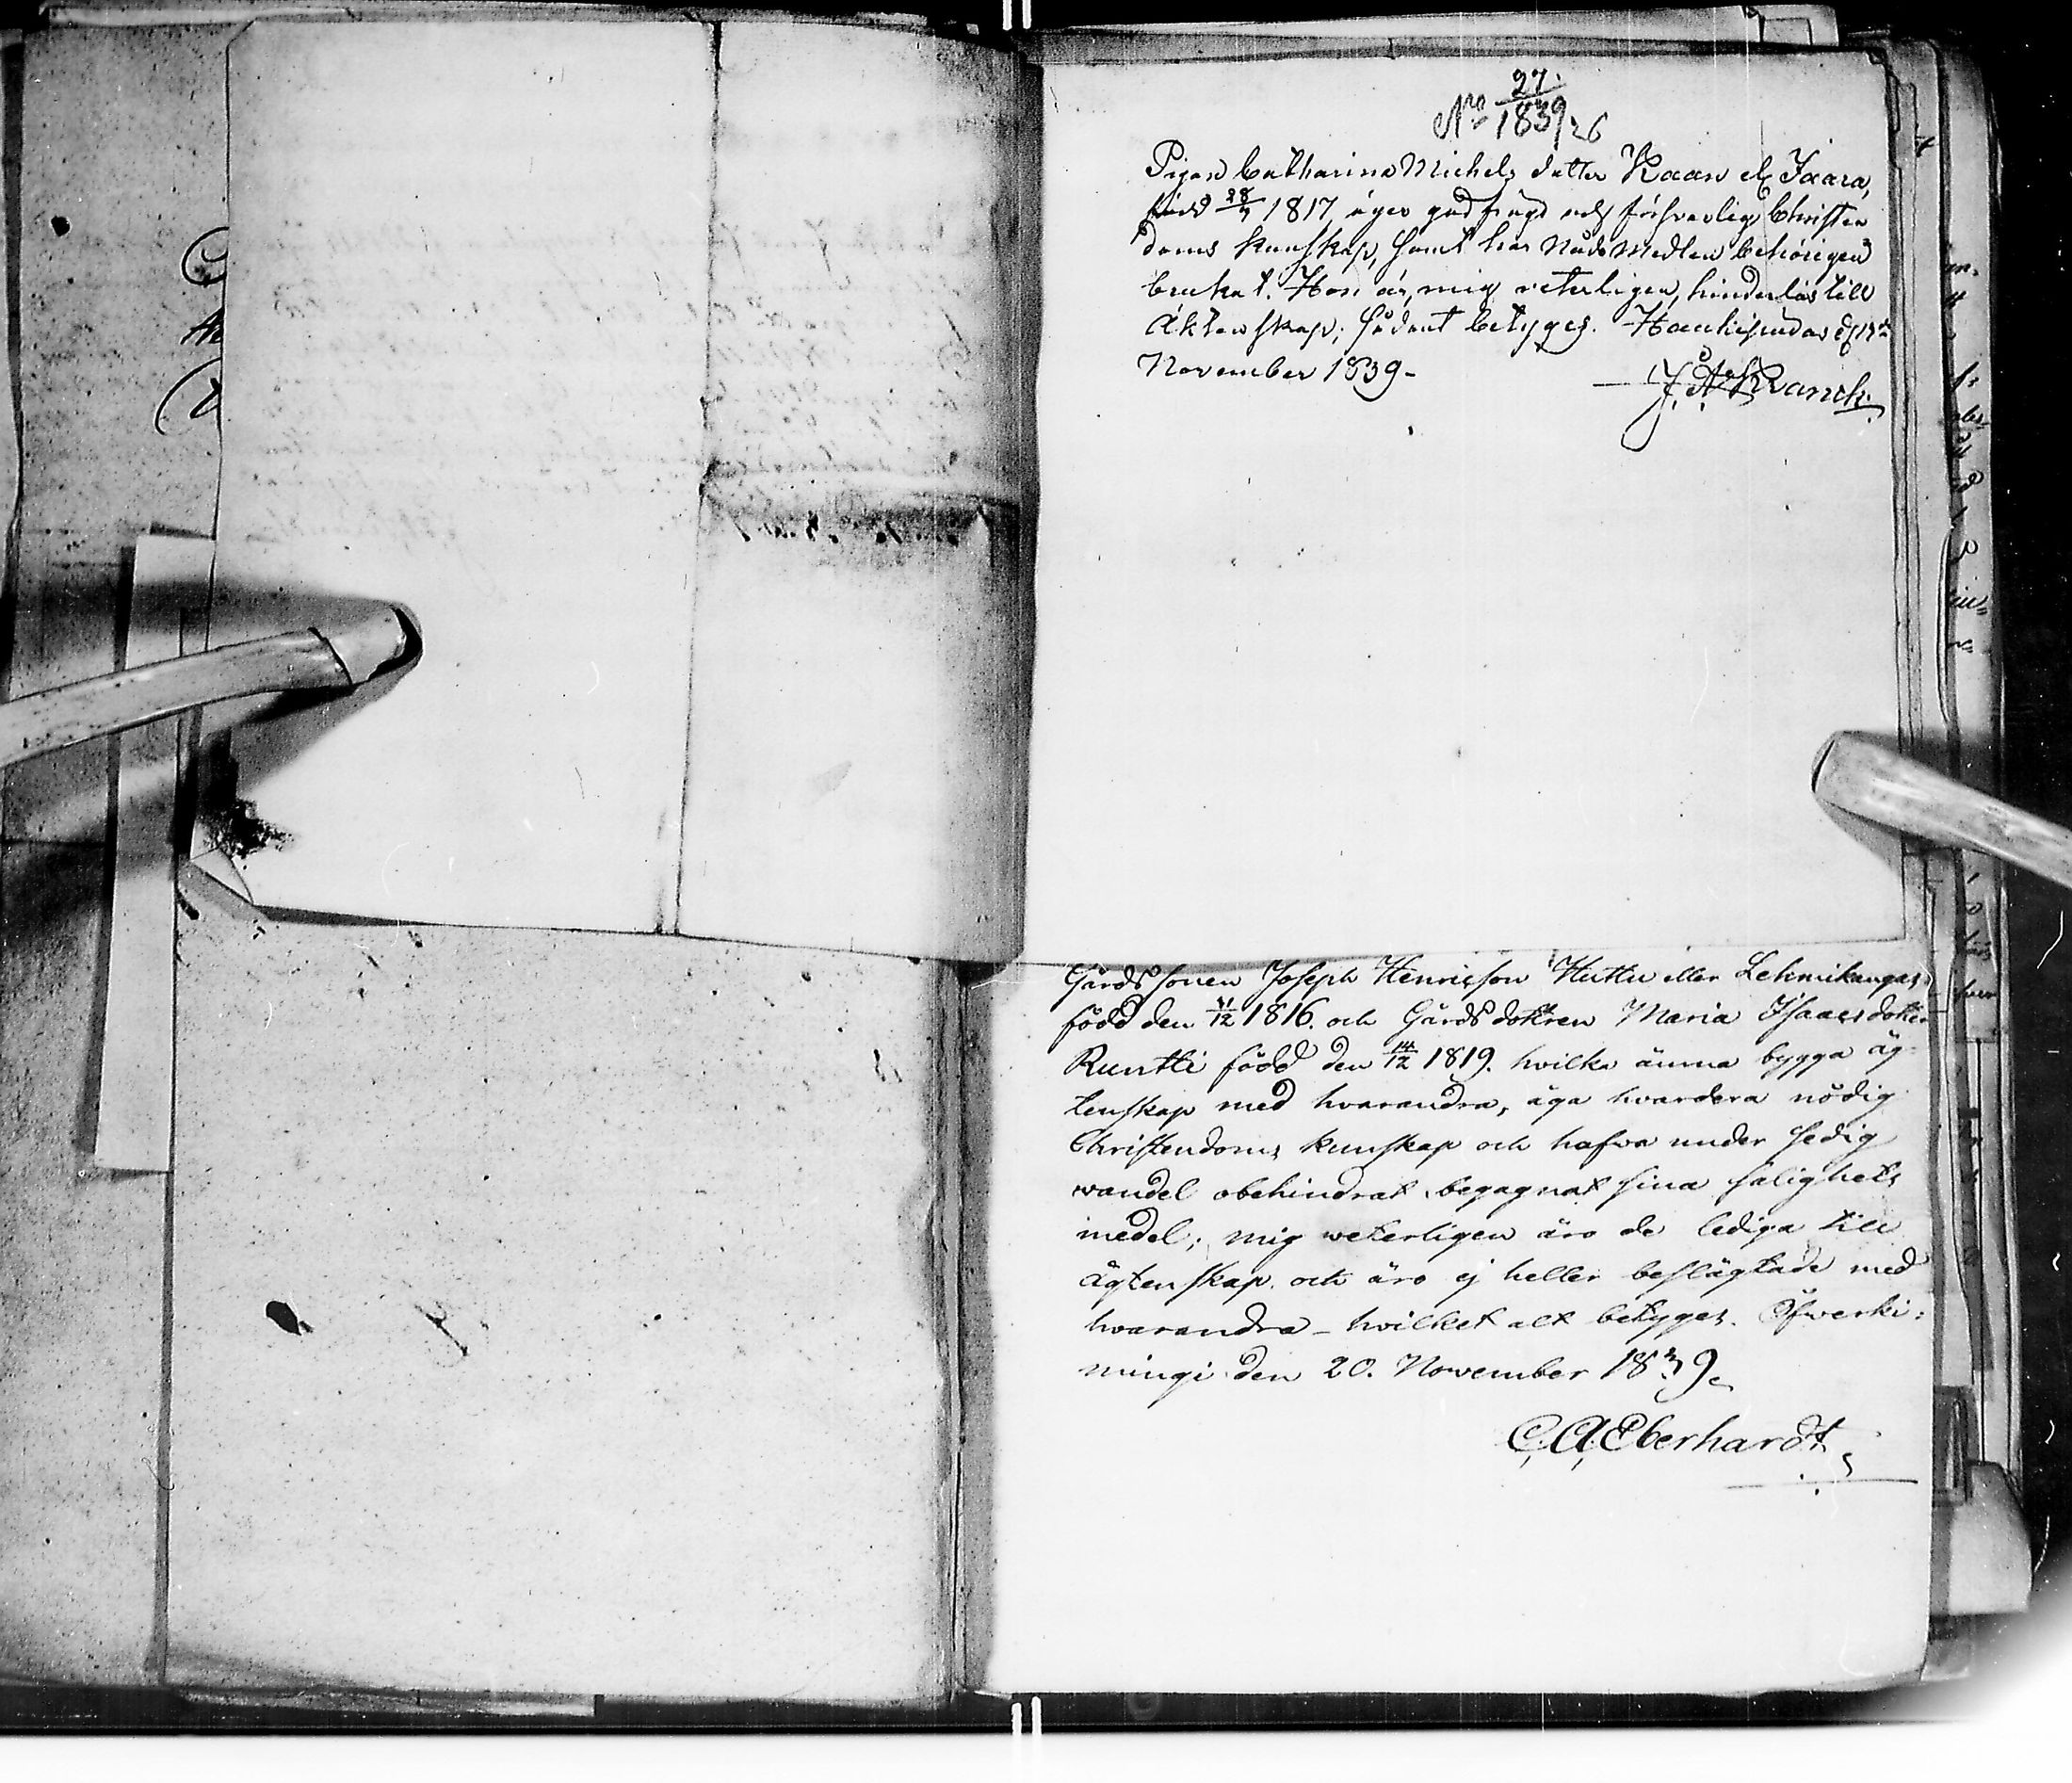 27.
Nro 1839. 26
Pigan Catharina Michels dotter Kaan el Jaara,
född 28/7 1817, äger god frägd och försvarlig Christen
doms kunskap, samt har Nåds Medlen behörigen
brukat. Hon är, mig veterligen, hinderlös till
Äktenskap; sådant betyges. Haukipudas d
November 1839.
J. A. Kranck.
Gårds sonen Joseph Henricson Huttu eller Lehmikangas
född den 11/12 1816. och Gårds dottren Maria Isaacsdotter
Runtti född den 14/12 1819. hvilka ämna bygga äg-
tenskap med hvarandra, äga hvardera nödig
Christendoms kunskap och hafva under sedig
wandel obehindrat begagnat sina salighets
medel; mig weterligen äro de lediga till
ägtenskap och äro ej heller beslägtade med
hvarandra – hvilket alt betyges. Öfwerki:
mingi den 20. November 1839.
C. A. Eberhardt